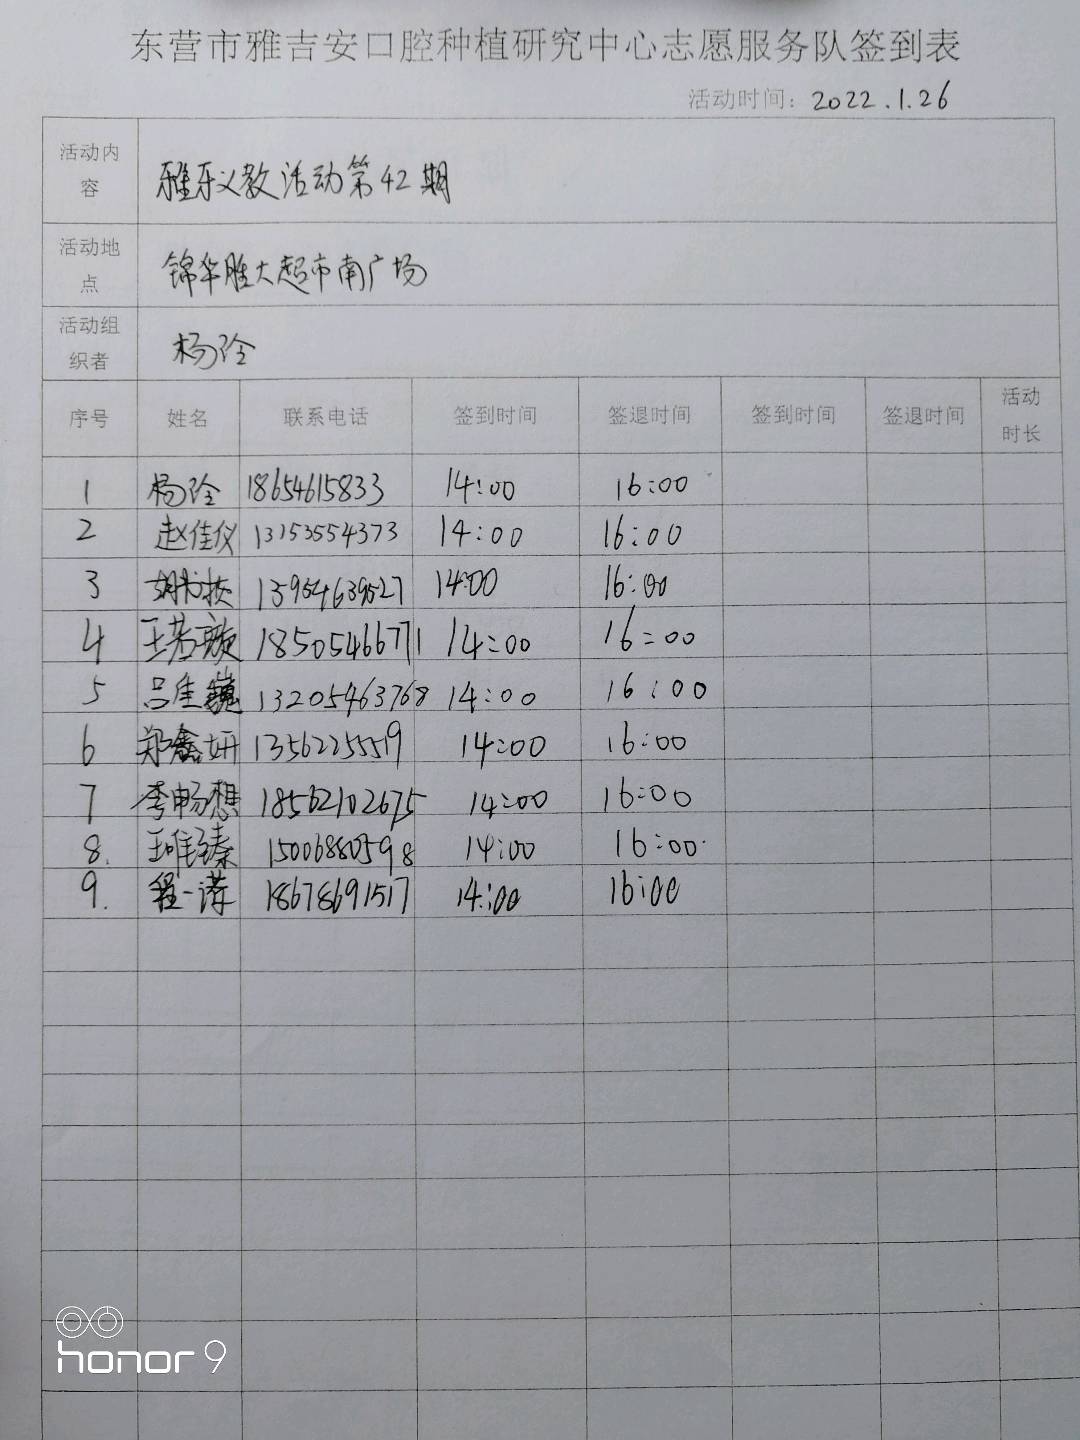 东营市雅吉安口腔种植研究中心志愿服务队签到表
活动时间：2022.1.26
活动内容 雅乐义教活动第42期
活动地点 锦华胜大超市南广场
活动组织者 杨玲
序号 姓名 联系电话 签到时间 签退时间 签到时间 签退时间 活动时长
1 杨玲 18654615833 14:00 16:00
2 赵佳仪 13153554373 14:00 16:00
3 13954639527 14:00 16:00
4 王若璇 18505466771 14:00 16:00
5 吕佳巍 13205463768 14:00 16:00
6 郑鑫妍 13562255519 14:00 16:00
7 李畅想 18562102675 14:00 16:00
8. 15006880598 14:00 16:00
9. 程一诺 18678691517 14:00 16:00
honor 9